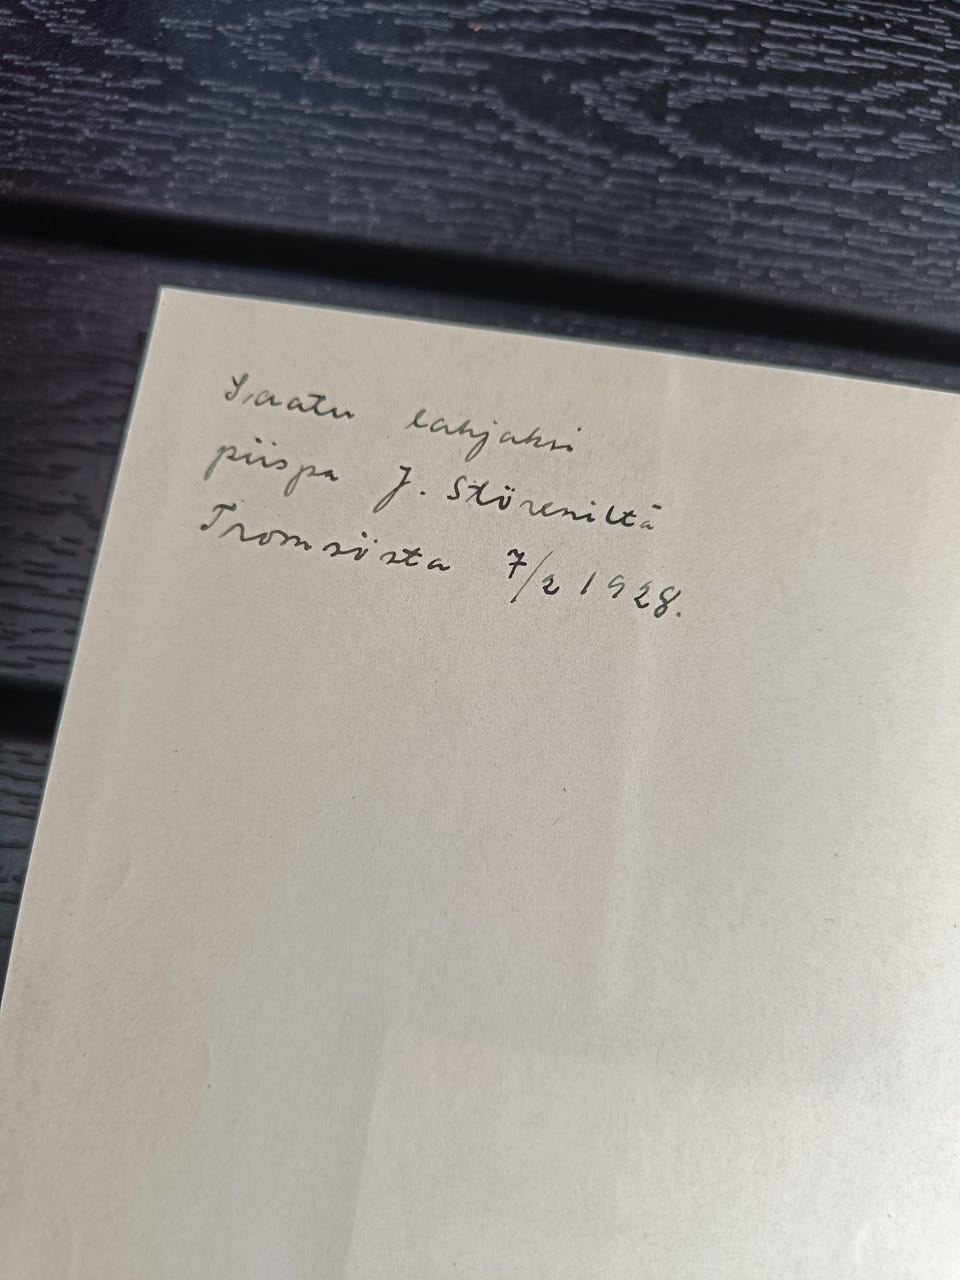 Saatu lahjaksi
piispa J. Störeniltä
Tromsöstä 7/2 1928.